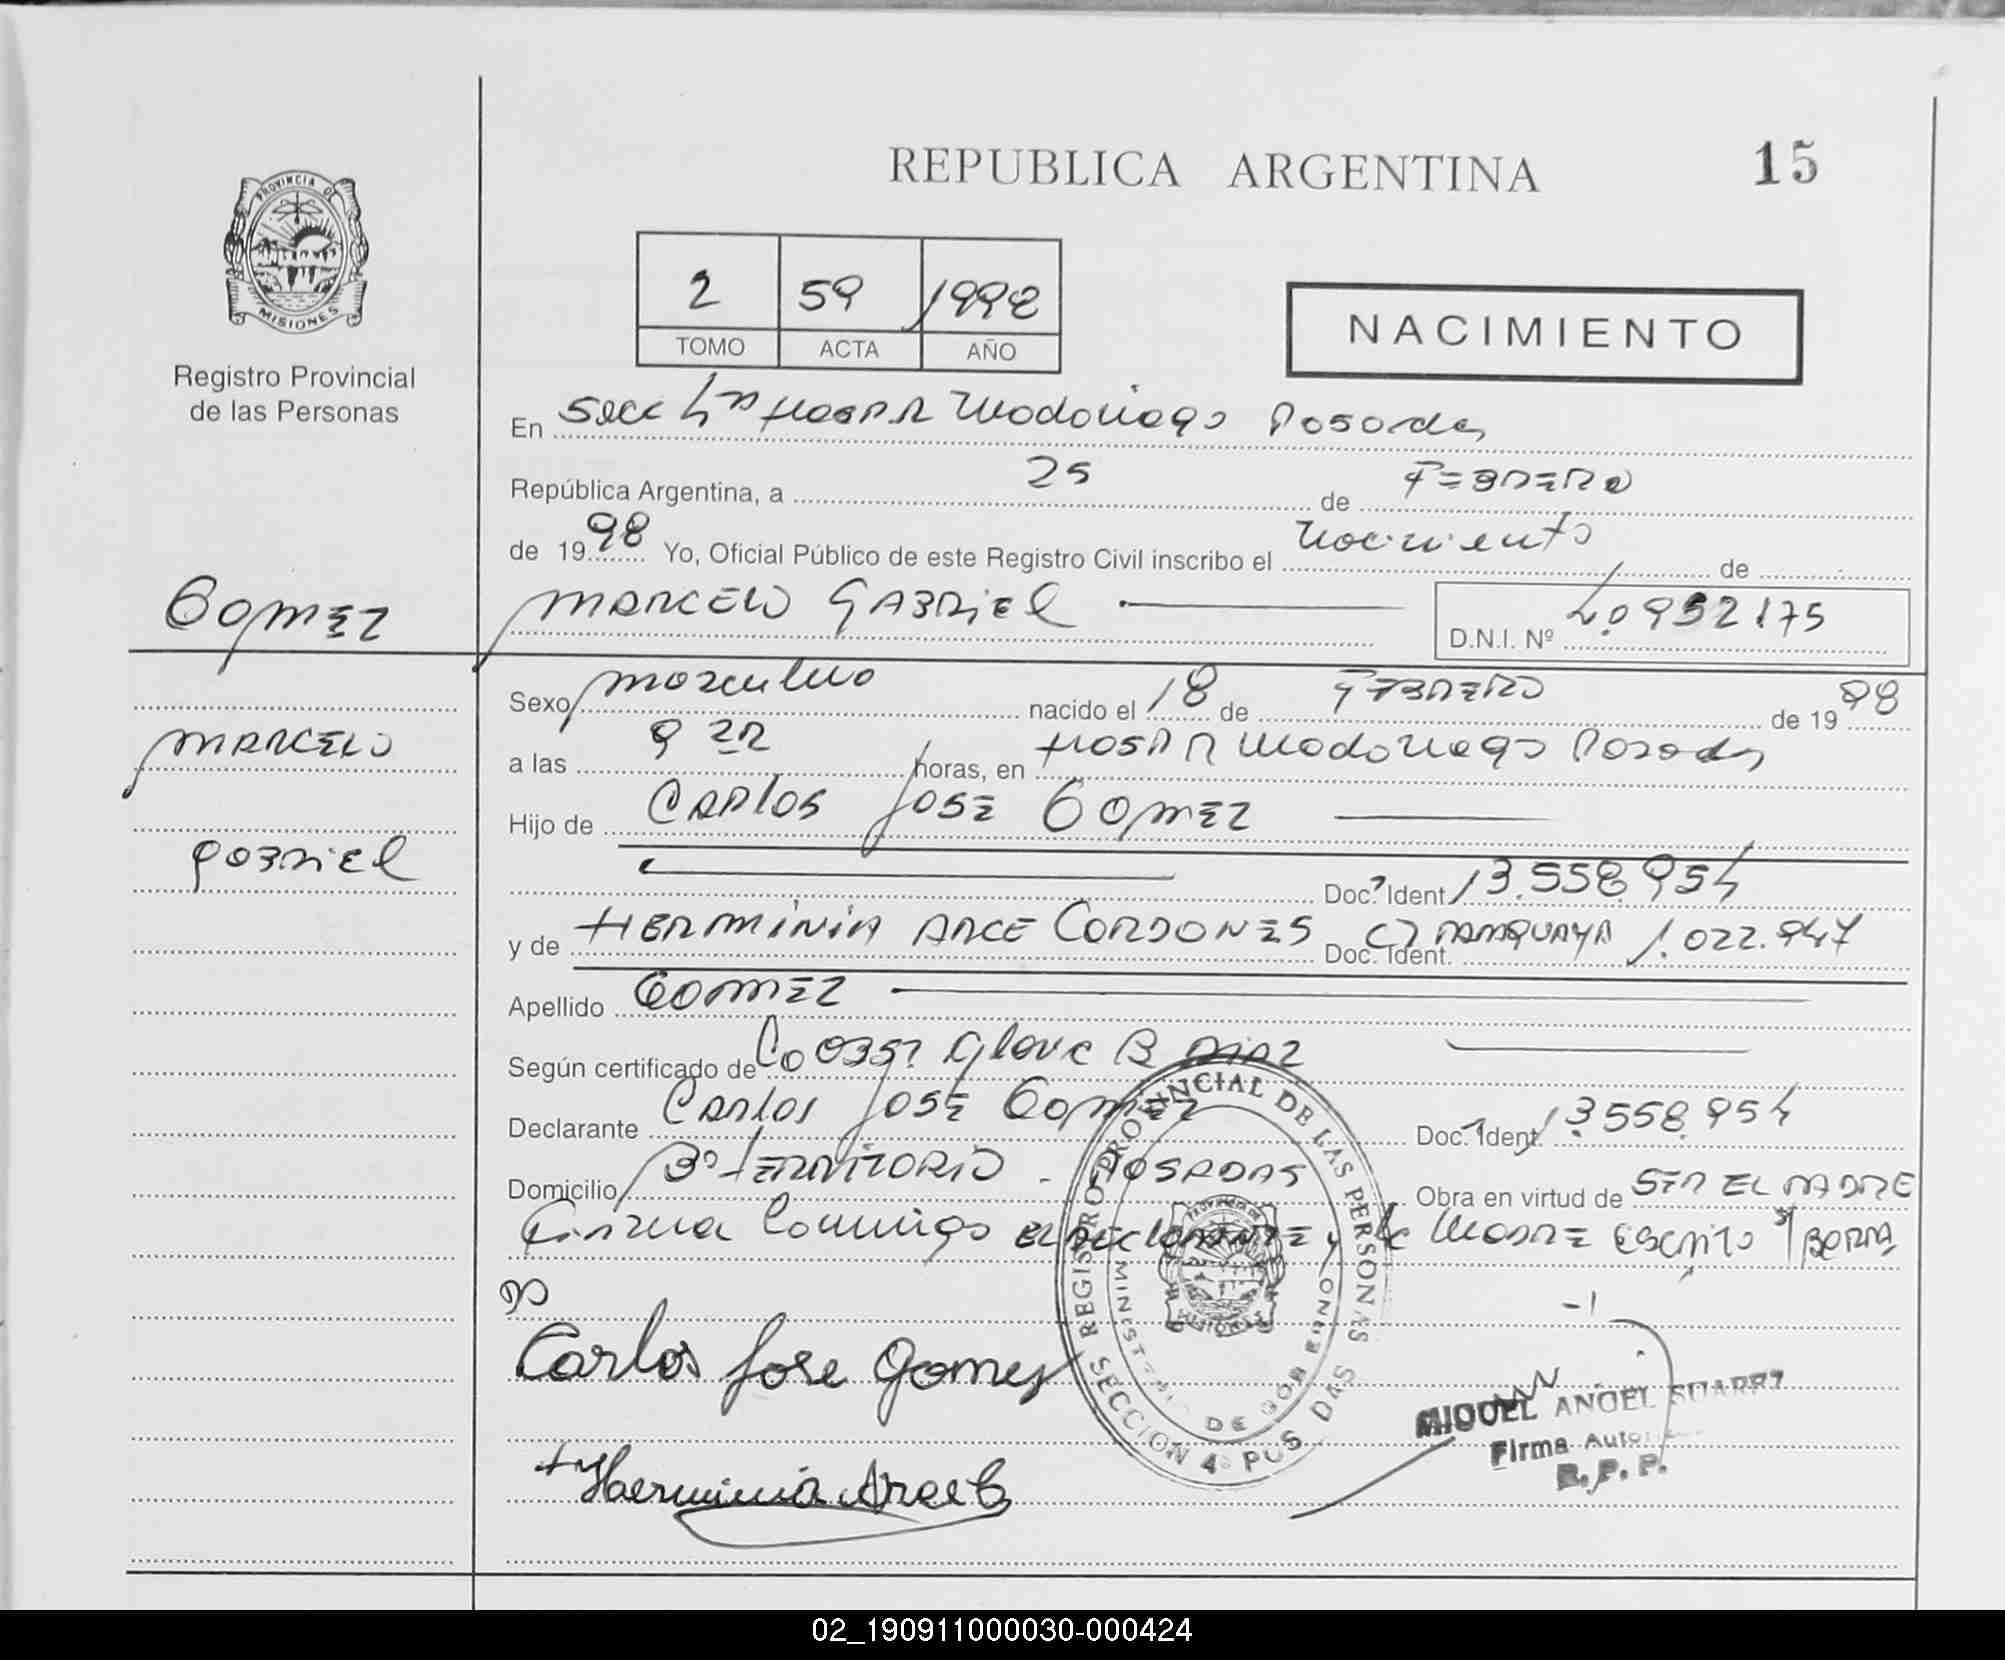 REPUBLICA ARGENTINA
15
PROVINCIA DE
MISIONES
Registro Provincial
de las Personas
2 59 1998
TOMO ACTA AÑO
NACIMIENTO
En Secc 4ta Hosp. R Madariaga Posadas
República Argentina, a 25 de FEBRERO
de 1998 Yo, Oficial Público de este Registro Civil inscribo el nacimiento de
MARCELO GABRIEL D.N.I. Nº 40.952175
GOMEZ
MARCELO
GABRIEL
Sexo masculino nacido el 18 de FEBRERO de 1998
a las 9 horas, en HOSP R Madariaga Posadas
Hijo de CARLOS JOSE GOMEZ
Doc. Ident. 13.558.954
y de HERMINIA ARCE CORDONES Doc. Ident. CI PARAGUAYA 1.022.947
Apellido GOMEZ
Según certificado de B DIAZ
Declarante CARLOS JOSE GOMEZ Doc. Ident. 13.558.954
Domicilio Bº TERRITORIO - POSADAS Obra en virtud de SER EL PADRE
Firma conmigo EL DECLARANTE y la MADRE ESCRITO S/ BORRA
DO
Carlos Jose Gomez
Herminia Arce C
REGISTRO PROVINCIAL DE LAS PERSONAS
MINISTERIO DE GOBIERNO
SECCION 4º POSADAS
MIGUEL ANGEL SUAREZ
Firma
R. P. P.
02_190911000030-000424